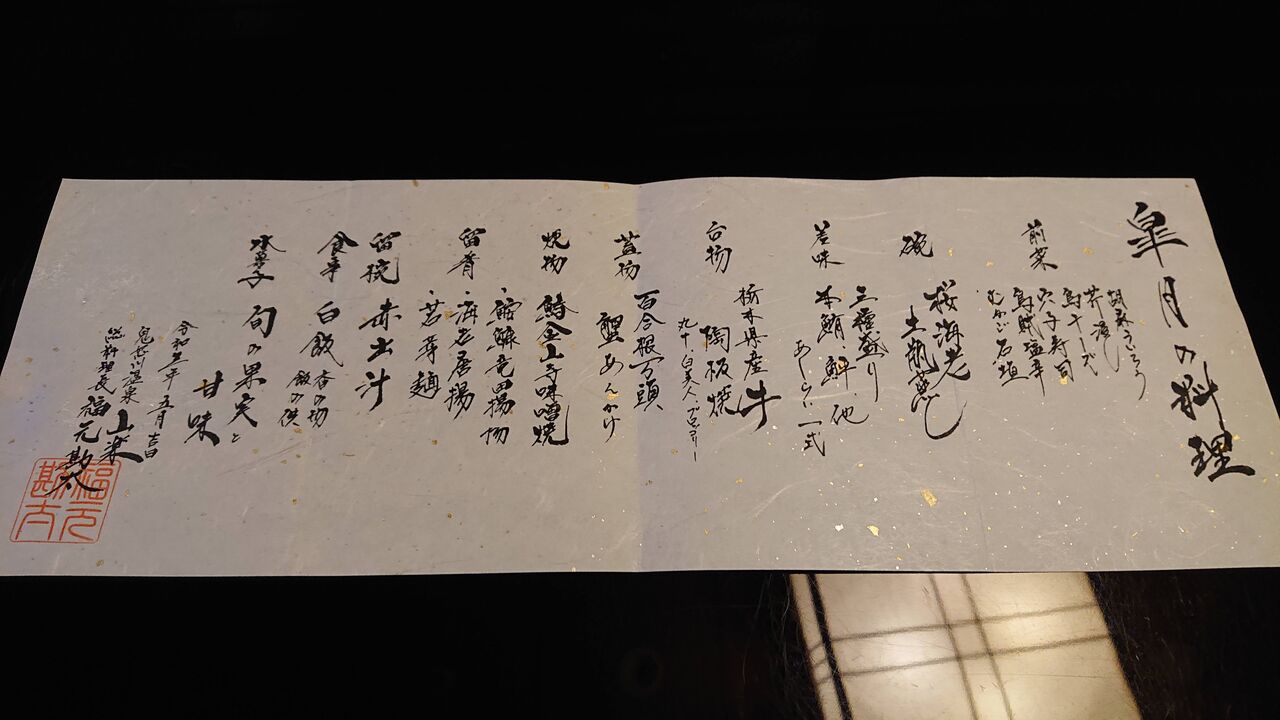 皐月の料理
前菜
胡麻ういろう
芹浸し
烏十チーズ
穴子寿司
烏賊塩辛
むかご石垣
椀
桜海老
土瓶蒸し
差味
三種盛り
本鮪 鮃 他
あしらい一式
台物
栃木県産牛
陶板焼
丸十 白美人 ブロッコリー
蓋物
百合根万頭
蟹あんかけ
焼物
鰆金山寺味噌焼
留肴
・鮟鱇竜田揚
・海老唐揚
・若芽麺
留椀
赤出汁
食事
白飯
香の物
飯の供
水菓子
旬の果実と
甘味
令和五年 五月吉日
鬼怒川温泉 山楽
総料理長 福元勘太
福元勘太